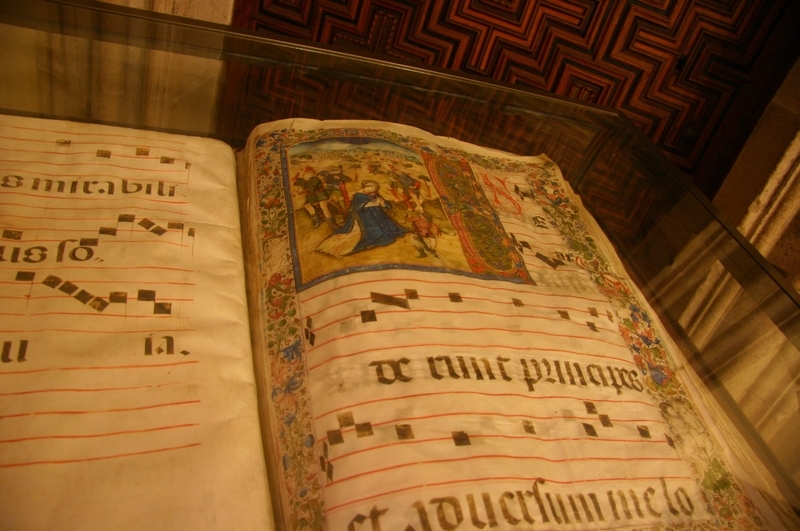 s mirabili
us so
u ia.
de runt principes
et aduersum me lo